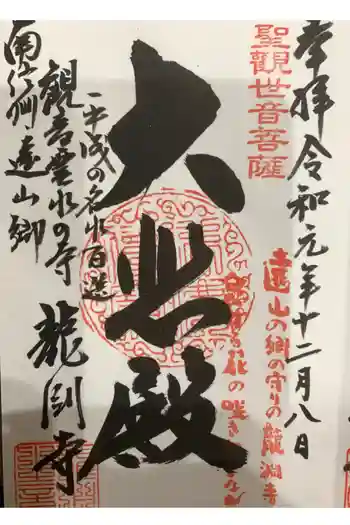 奉拝令和元年十二月八日
聖觀世音菩薩
遠山の郷の守りの龍淵寺
大悲殿
平成の名水百選
觀音霊水の寺 龍渕寺
南信州遠山郷